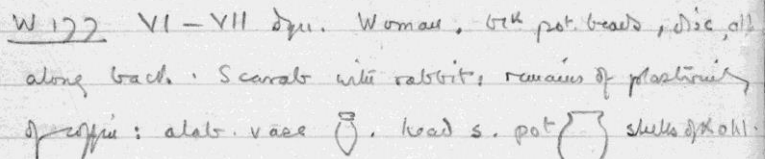 W 177 VI – VII dyn. Woman. blk pot. beads, disc, all
along back. Scarab with rabbit, remains of plastering
of coffin: alab. vase . head s. pot shells of kohl.